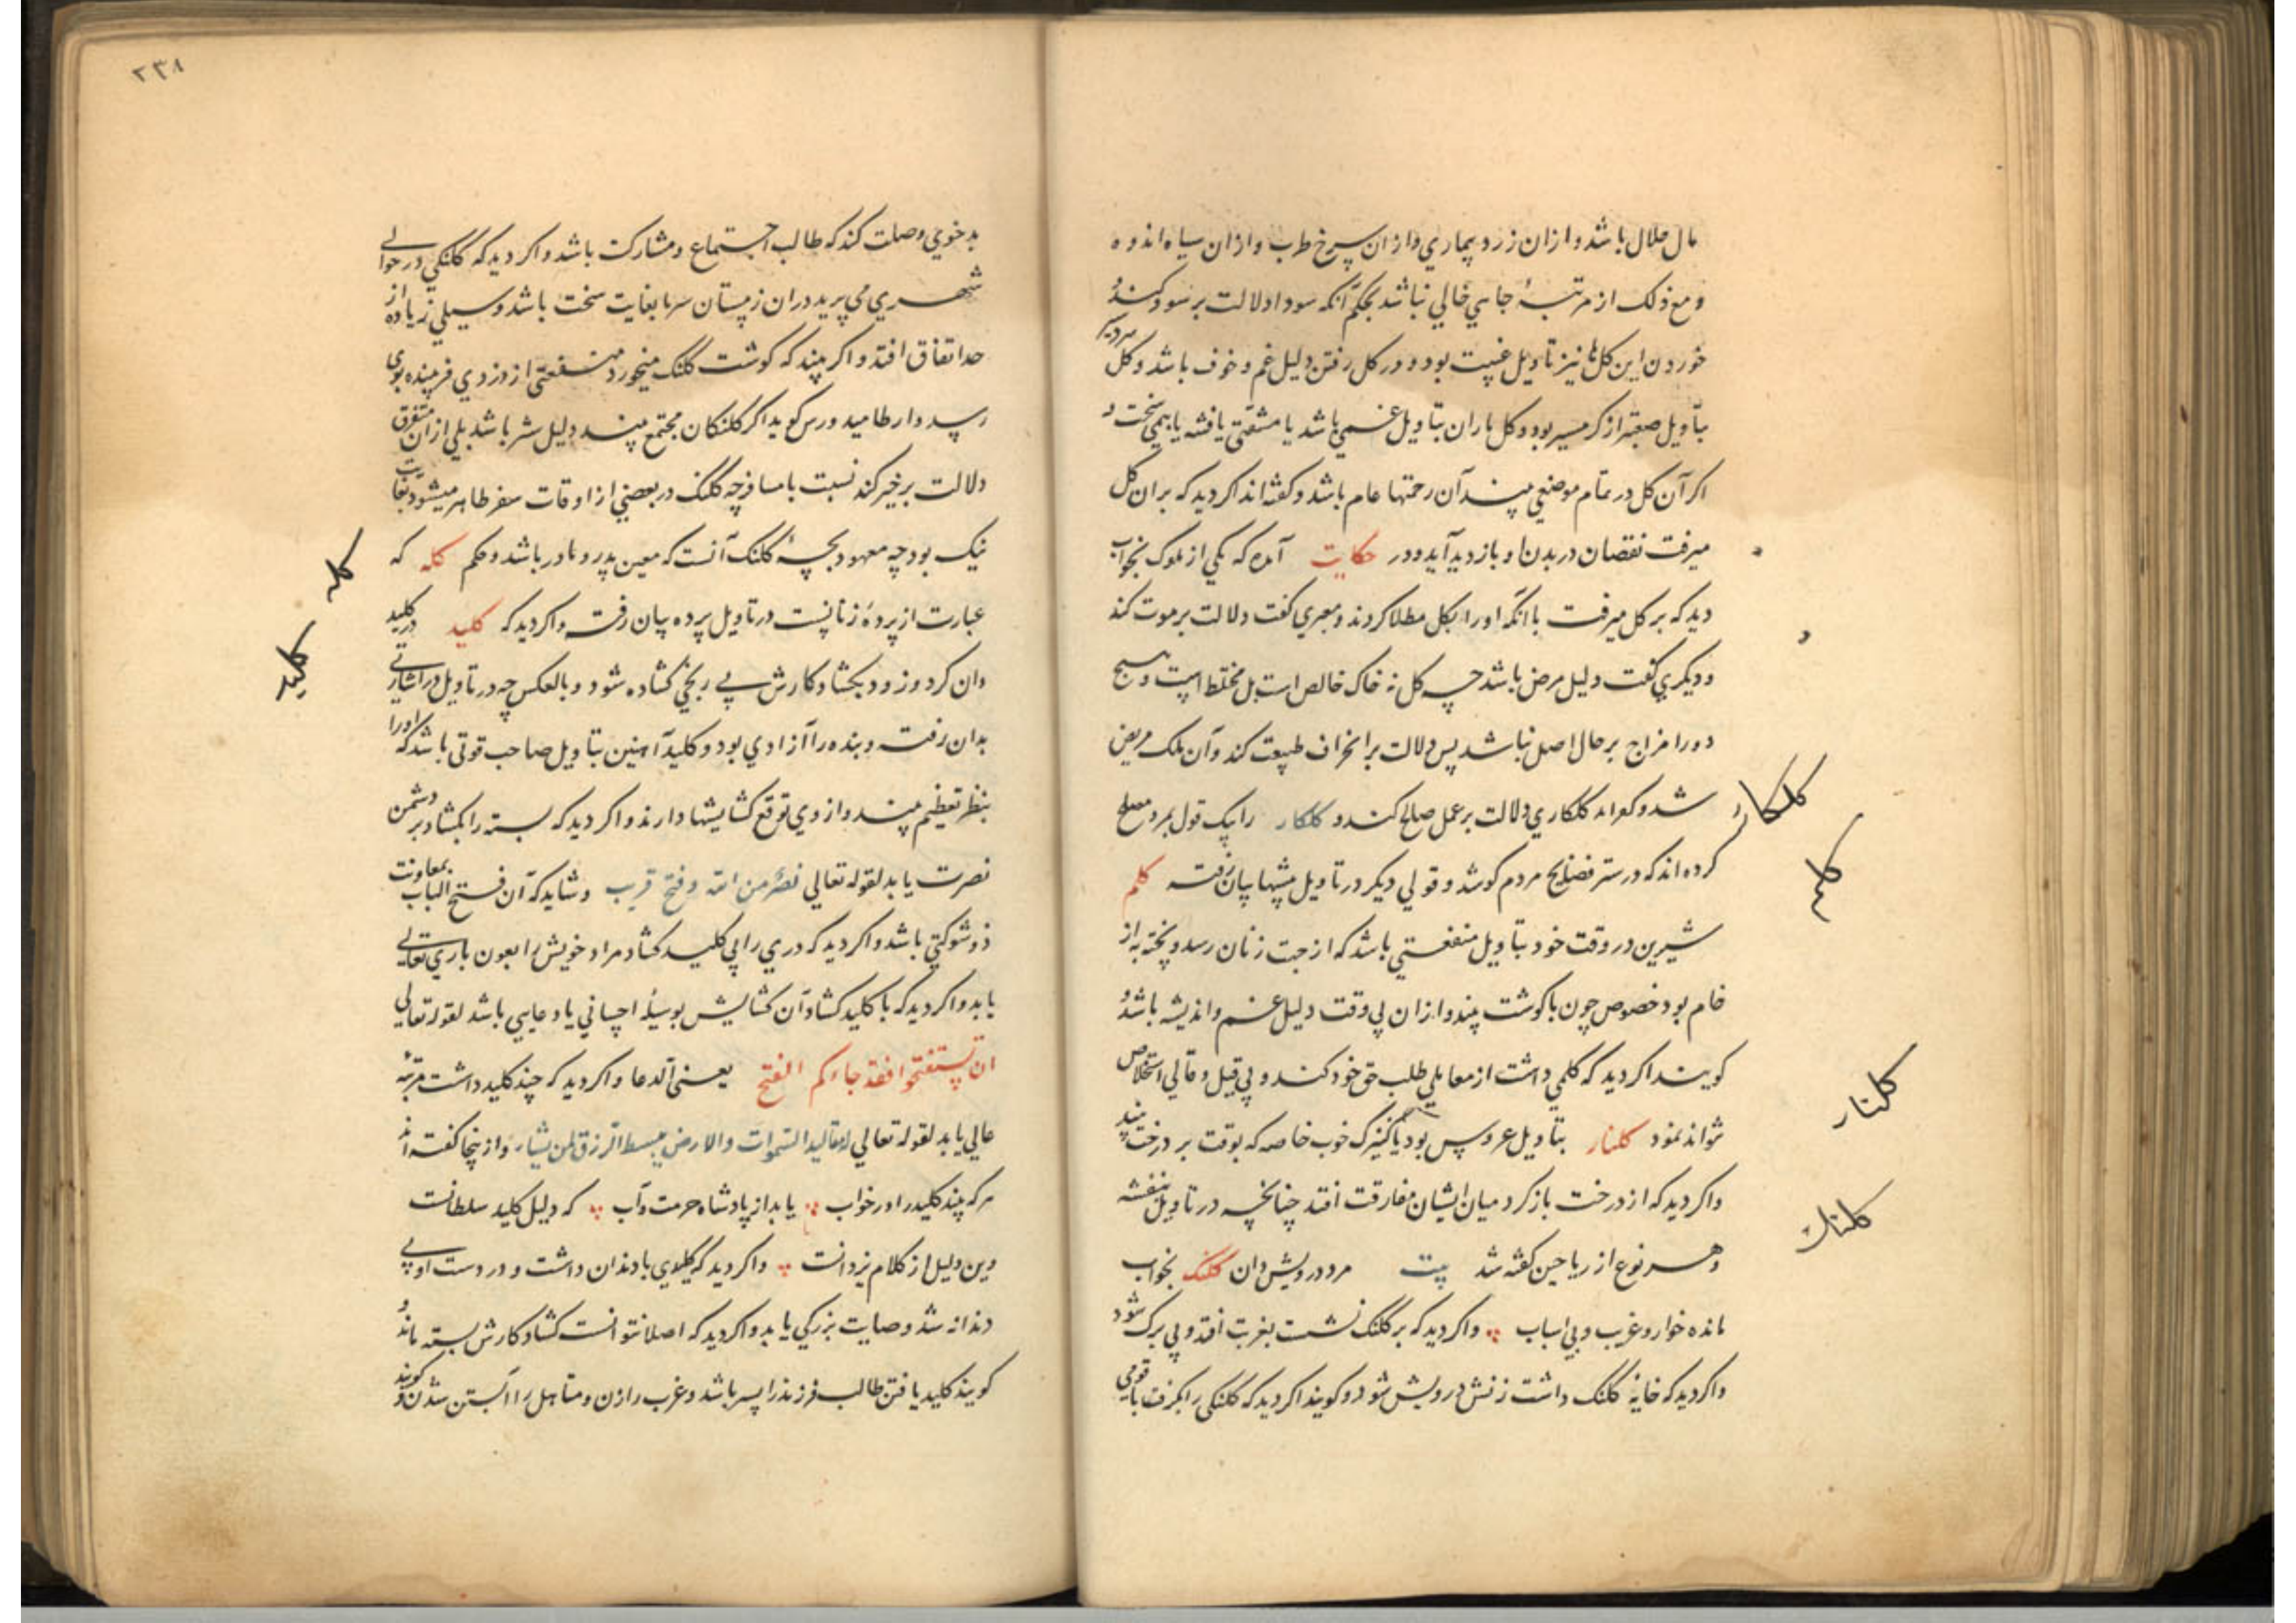 مال حلال باشد و ازان زرد بیماری و ازان سرخ طرب و ازان سیاه اندوه
و مع ذلک از مرتبهٔ جاهی خالی نباشد بحکم آنکه سودا دلالت بر سود کند و
خوردن این کل‌ها نیز تاویل غیبت بود و در کل رفتن دلیل غم و خوف باشد و کل سردسیر
بتاویل صعبتر از کرمسیر بود و کل باران بتاویل غمی باشد یا مشقتی یا فتنه یا بیمی سخت و
اکر آن کل در تمام موضعی بیند آن زحمتها عام باشد و کفته‌اند اکر دید که بران کل
میرفت نقصان در بدن او بازدید آید و در حکایت آمده که یکی از ملوک بخواب
دید که بر کل میرفت با آنکه او را بکل مطلا کردند و معبری کفت دلالت بر موت کند
و دیکری کفت دلیل مرض باشد چه کل نه خاک خالص است بل مختلط است و هیچ
دو را مزاج بر حال اصل نباشد پس دلالت بر انحراف طبیعت کند و آن ملک مریض
شد و کلکاری دلالت بر عمل صالح کند و کلکار را یک قول بمرد مصلح
کلکار
کرده‌اند که در ستر فضایح مردم کوشد و قولی دیکر در تاویل پیشها بیان رفت کلم
کلم
شیرین در وقت خود بتاویل منفعتی باشد که از جهت زنان رسد و پخته به از
خام بود خصوص چون با کوشت بیند و ازان بی وقت دلیل غم و اندیشه باشد و
کویند اکر دید که کلمی داشت از معاملی طلب حق خود کند و بی قیل و قالی استخلاص
نتواند نمود کلنار بتاویل عروس بود یا کنیزک خوب خاصه که بوقت بر درخت بیند
کلنار
و اکر دید که از درخت باز کرد میان ایشان مفارقت افتد چنانچه در تاویل بنفشه
و هر نوع از ریاحین کفته شد بیت مرد درویش دان کلنک بخواب
کلنک
مانده خوار و غریب و بی اسباب و اکر دید که بر کلنک نشست بغربت افتد و بی برک شود
و اکر دید که خایهٔ کلنک داشت زنش درویش شود و کویند اکر دید که کلنکی را بکرفت با قومی
٢٣٨
بدخوی وصلت کند که طالب اجتماع و مشارکت باشد و اکر دید که کلنکی در حوالی
شهری می پرید دران زمستان سرما بغایت سخت باشد و سیلی زیاده از
حد اتفاق افتد و اکر بیند که کوشت کلنک میخورد منفعتی از دزدی فریبنده بوی
رسد و ارطامیدورس کوید اکر کلنکان مجتمع بیند دلیل شر باشد بلی ازان متفرق
دلالت بر خیر کند نسبت با مسافر چه کلنک در بعضی از اوقات سفر ظاهر میشود بغایت
نیک بود چه معهود بچهٔ کلنک آنست که معین پدر و مادر باشد و حکم کله که
کله
عبارت از پردهٔ زنانست در تاویل پرده بیان رفت و اکر دید که کلید در کلید
کلید
دان کرد و زود بکشاد کارش بی رنجی کشاده شود و بالعکس چه در تاویل در اشارتی
بدان رفت و بنده را آزادی بود و کلید آهنین بتاویل صاحب قوتی باشد که او را
بنظر تعظیم بیند و از وی توقع کشایشها دارند و اکر دید که بسته را بکشاد بر دشمن
نصرت یابد لقوله تعالی نصر من الله و فتح قریب و شاید که آن فتح الباب بمعاونت
ذو شوکتی باشد و اکر دید که دری را بی کلید کشاد مراد خویش را بعون باری تعالی
یابد و اکر دید که با کلید کشاد آن کشایش بوسیلهٔ احسانی یا دعایی باشد لقوله تعالی
ان تستفتحوا فقد جاءکم الفتح یعنی الدعا و اکر دید که چند کلید داشت مرتبهٔ
عالی یابد لقوله تعالی له مقالید السموات والارض یبسط الرزق لمن یشاء و ازینجا کفته‌اند
هر که بیند کلید را در خواب یابد از پادشاه حرمت و آب که دلیل کلید سلطانست
وین دلیل از کلام یزدانست و اکر دید که کلیدی با دندان داشت و در دست او بی
دندانه شد وصایت بزرکی یابد و اکر دید که اصلا نتوانست کشاد کارش بسته ماند و
کویند کلید یافتن طالب فرزند را پسر باشد و عزب را زن و متاهل را آبستن شدن و کویند